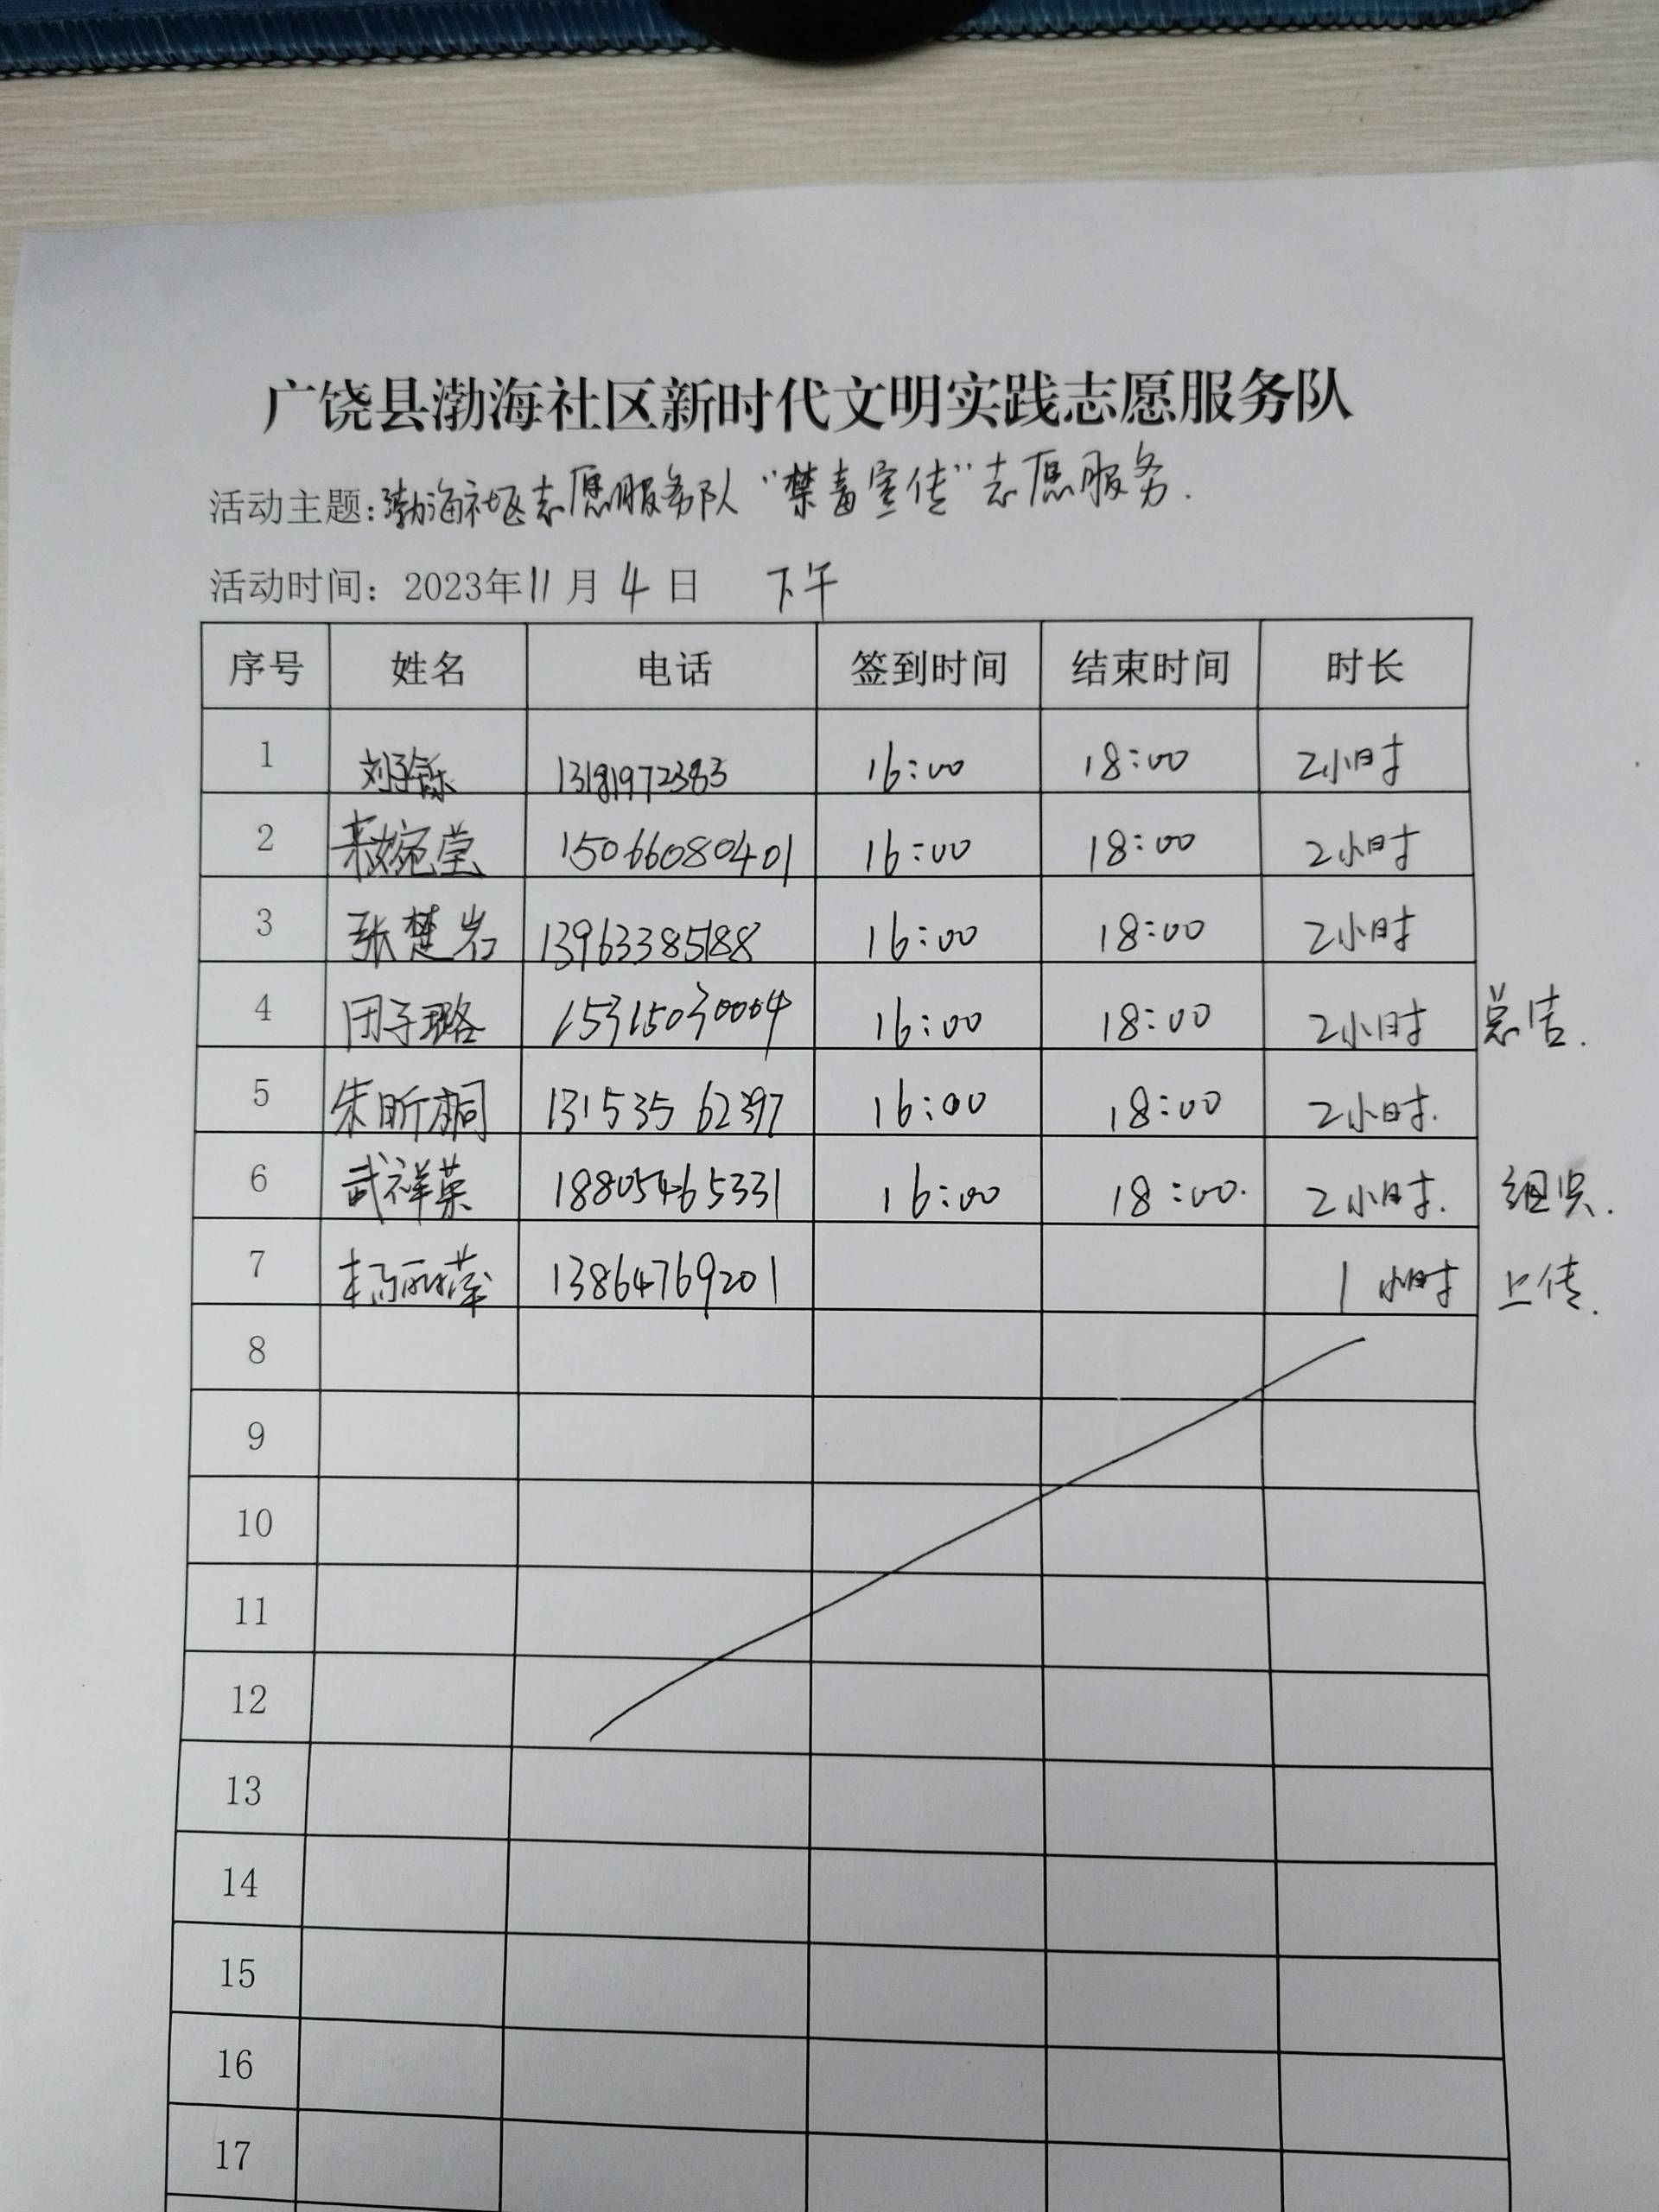 广饶县渤海社区新时代文明实践志愿服务队
活动主题:渤海社区志愿服务队“禁毒宣传”志愿服务.
活动时间：2023年11月4日 下午
序号 姓名 电话 签到时间 结束时间 时长
1 刘子铄 13181972383 16:00 18:00 2小时
2 婉莹 15066080401 16:00 18:00 2小时
3 张楚岩 13963385188 16:00 18:00 2小时
4 子璐 15315030004 16:00 18:00 2小时 总结.
5 朱昕桐 13153562397 16:00 18:00 2小时.
6 武祥英 18805465331 16:00 18:00. 2小时. 组织.
7 13864769201 1小时 上传.
8
9
10
11
12
13
14
15
16
17